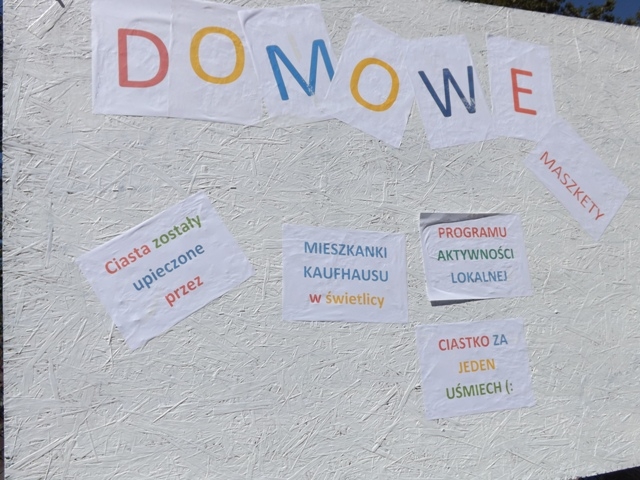 DOMOWE
MASZKETY
Ciasta zostały
upieczone
przez
MIESZKANKI
KAUFHAUSU
w świetlicy
PROGRAMU
AKTYWNOŚCI
LOKALNEJ
CIASTKO ZA
JEDEN
UŚMIECH (: